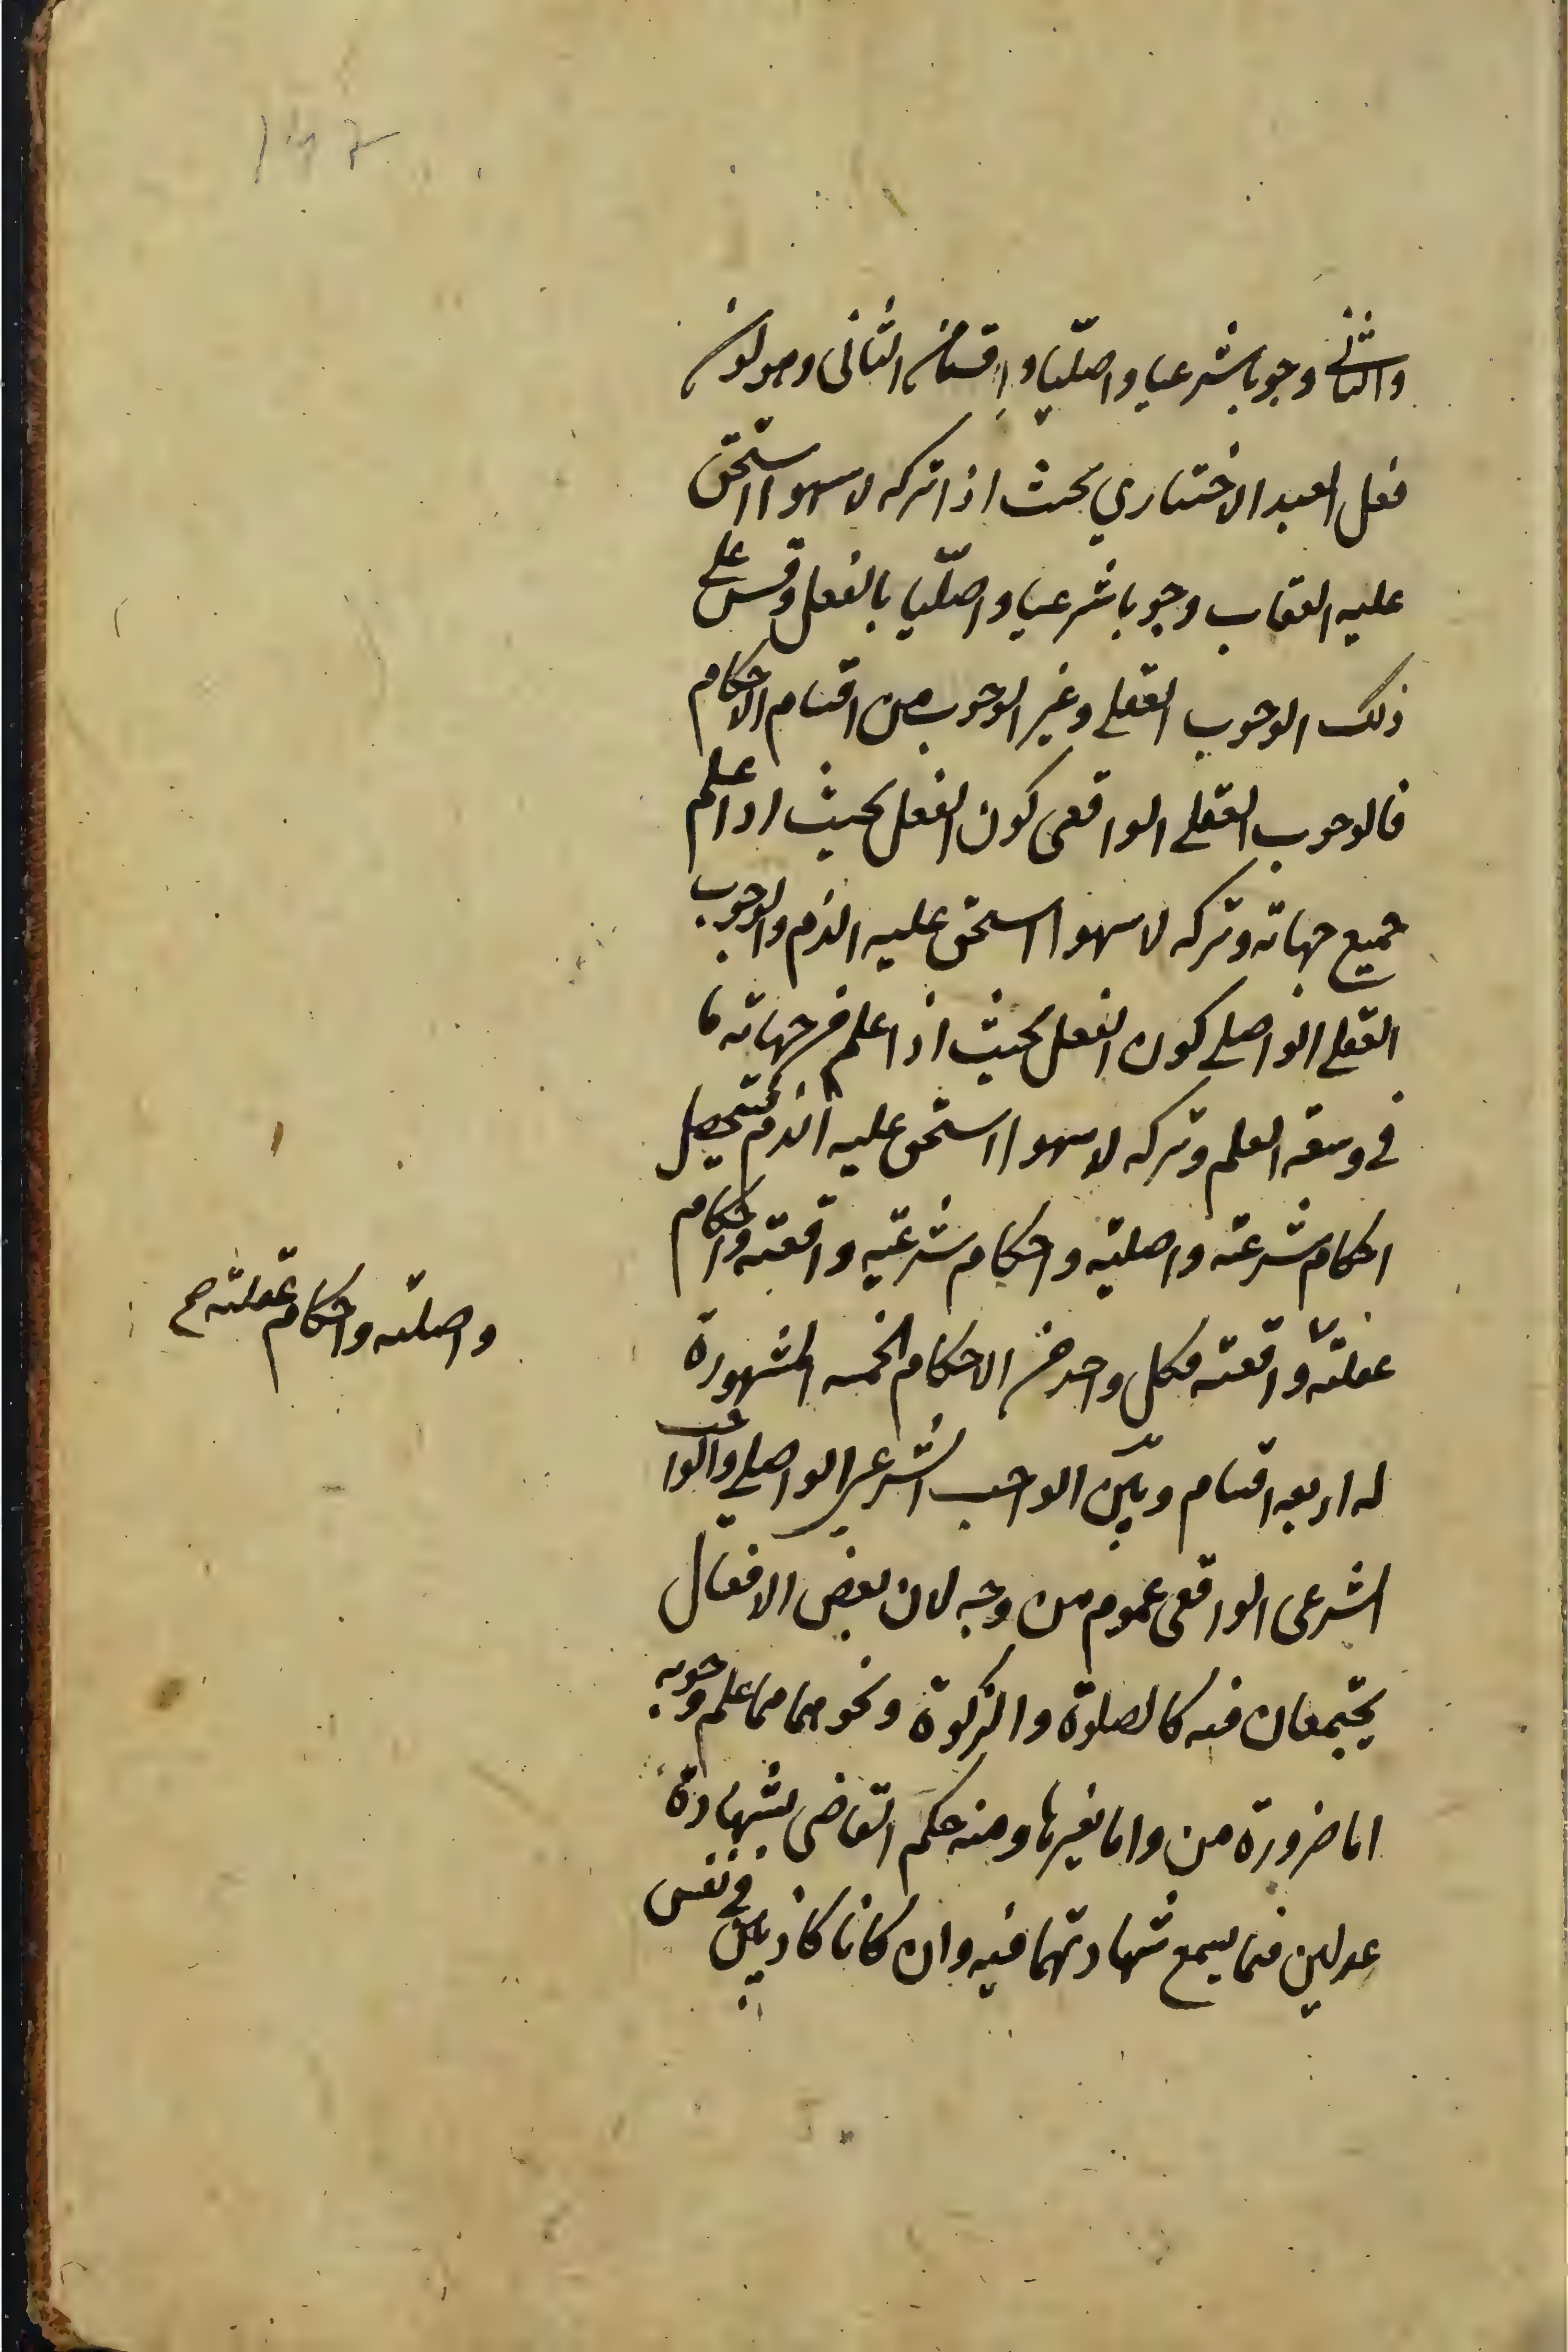 والثاني وجوبا شرعيا واصليا و اقسام الثانى وهو كون
فعل العبد الاختياري بحيث اذا تركه لا سهوا استحق
عليه العقاب وجوبا شرعيا واصليا بالفعل وقس على
ذلك الوجوب العقلي وغير الوجوب من اقسام الاحكام
فالوجوب العقلي الواقعى كون الفعل بحيث اذا علم
جميع جهاته وتركه لا سهوا استحق عليه الذم والوجوب
العقلي الواصلي كون الفعل بحيث اذا علم من جهاته ما
في وسعه العلم وتركه لا سهوا استحق عليه الذم فتحصيل
احكام شرعية واصلية واحكام شرعية واقعية واحكام
عقلية واقعية فكل واحد من الاحكام الخمسه المشهورة
واصلية واحكام عقلية صح
له اربعه اقسام وبين الواجب الشرعي الواصلي والواجب
الشرعى الواقعى عموم من وجه لان بعض الافعال
يجتمعان فيه كالصلوة والزكوة ونحوهما مما علم وجوبه
اما ضرورة من واما بغيرها ومنه حكم القاضى بشهادة
عدلين فيما يسمع شهادتهما فيه وان كانا كاذبين في نفس